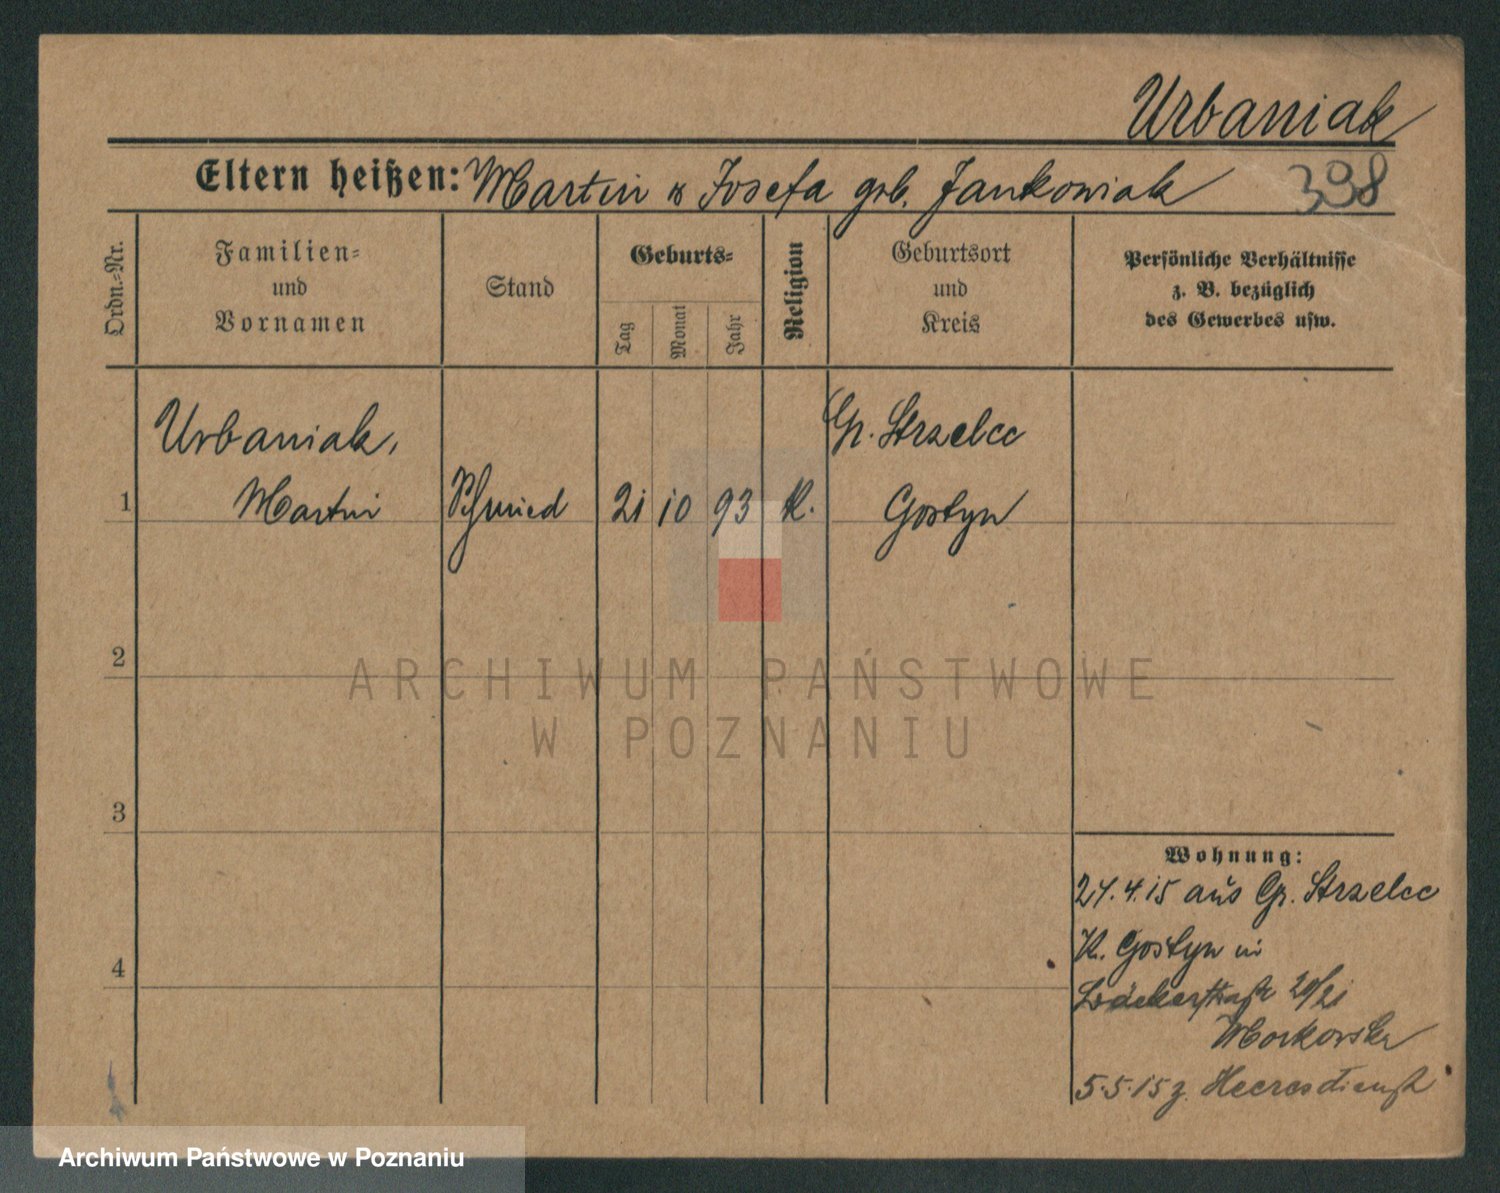 Urbaniak
Eltern heißen: Martin & Josefa geb. Jankowiak 398
Ordn.-Nr.
Familien-
und
Vornamen
Stand
Geburts-
Tag
Monat
Jahr
Religion
Geburtsort
und
Kreis
Persönliche Verhältnisse
z. B. bezüglich
des Gewerbes usw.
Urbaniak, Gr. Strzelce
1 Martin Schmied 21 10 93 K. Gostyn
2
3
4
Wohnung:
27.4.15 aus Gr. Strzelce
K. Gostyn in
Bäckerstraße 20/21
5.5.15 z. Heeresdienst
ARCHIWUM PAŃSTWOWE
W POZNANIU
Archiwum Państwowe w Poznaniu